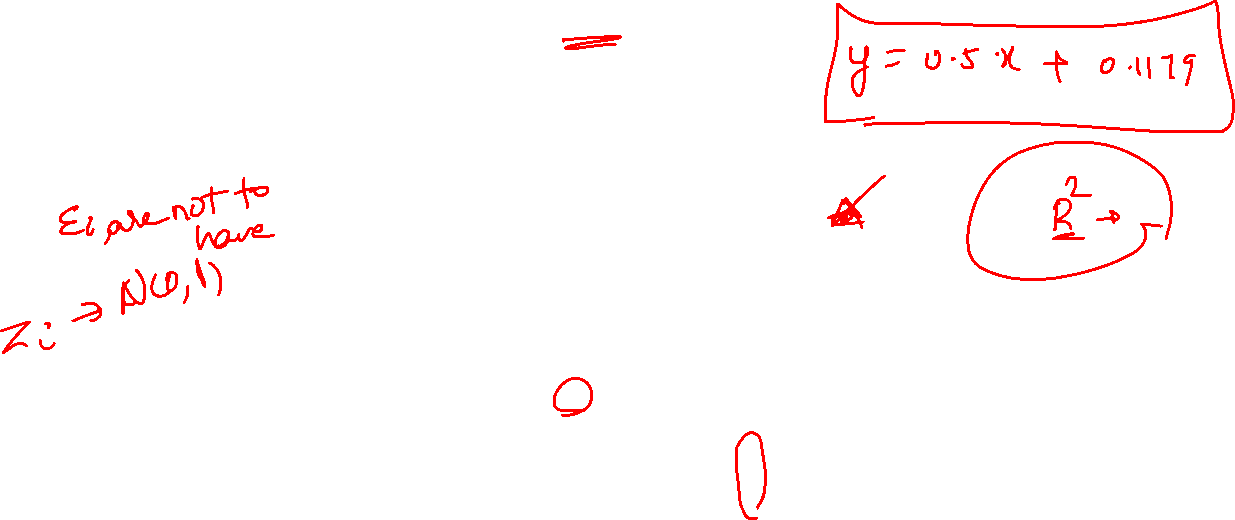 y = 0.5·x + 0.1179
R² →
εi are not to
have
Zi → N(0,1)